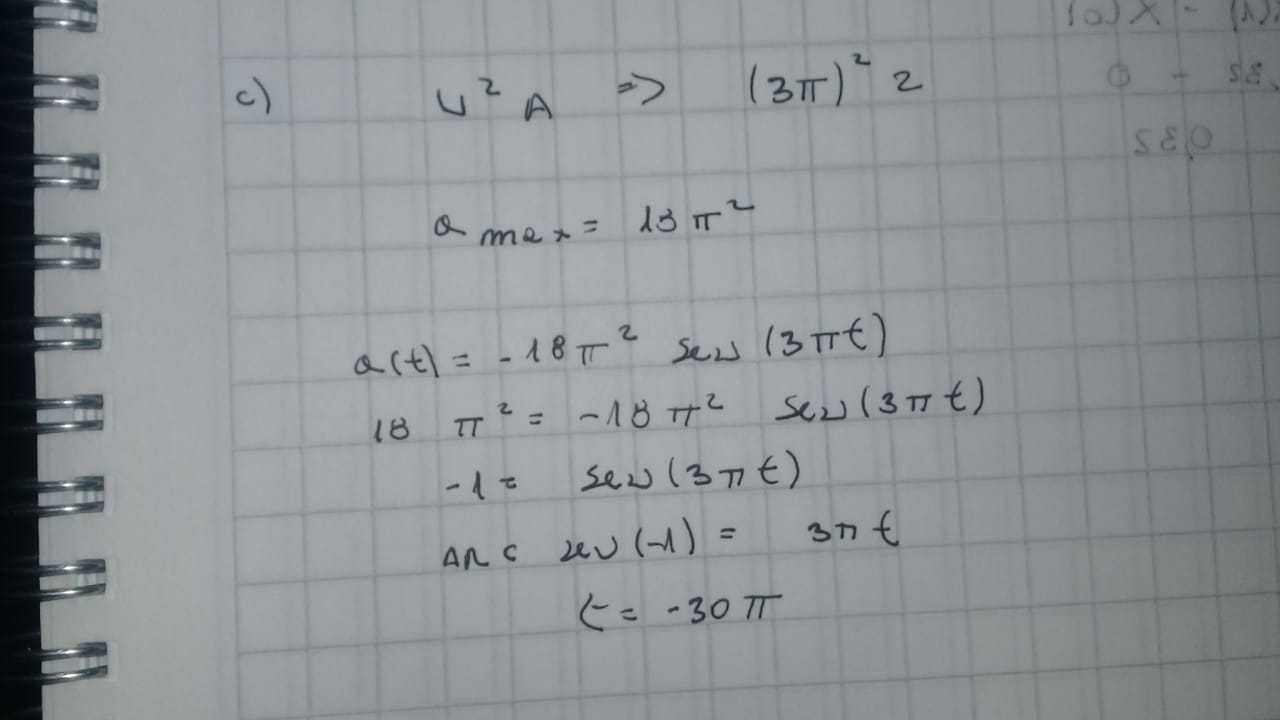 c) ω² A => (3π)² 2
a max = 18 π²
a(t) = -18 π² sen (3πt)
18 π² = -18 π² sen (3πt)
-1 = sen (3πt)
ARC sen (-1) = 3πt
t = -30 π